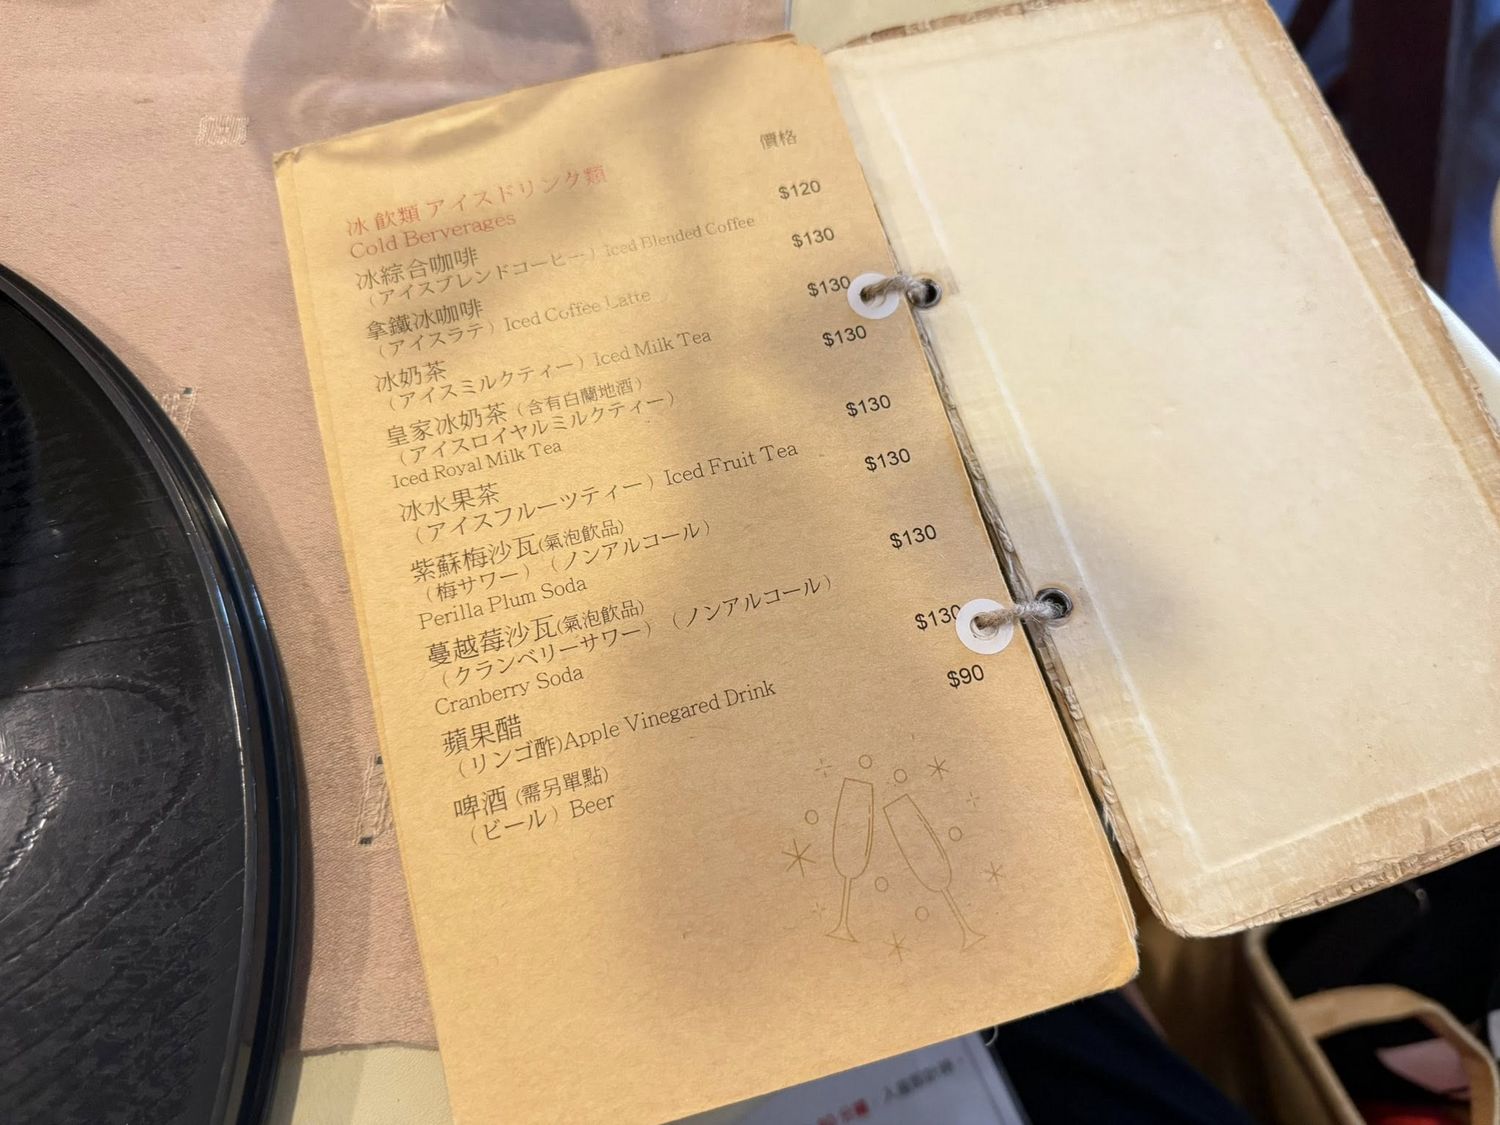 價格
冰飲類アイスドリンク類
Cold Berverages
冰綜合咖啡 $120
（アイスブレンドコーヒー）Iced Blended Coffee
拿鐵冰咖啡 $130
（アイスラテ）Iced Coffee Latte
冰奶茶 $130
（アイスミルクティー）Iced Milk Tea
皇家冰奶茶（含有白蘭地酒） $130
（アイスロイヤルミルクティー）
Iced Royal Milk Tea
冰水果茶 $130
（アイスフルーツティー）Iced Fruit Tea
紫蘇梅沙瓦(氣泡飲品) $130
（梅サワー）（ノンアルコール）
Perilla Plum Soda
蔓越莓沙瓦(氣泡飲品) $130
（クランベリーサワー）（ノンアルコール）
Cranberry Soda
蘋果醋 $130
（リンゴ酢)Apple Vinegared Drink
啤酒 (需另單點) $90
（ビール）Beer